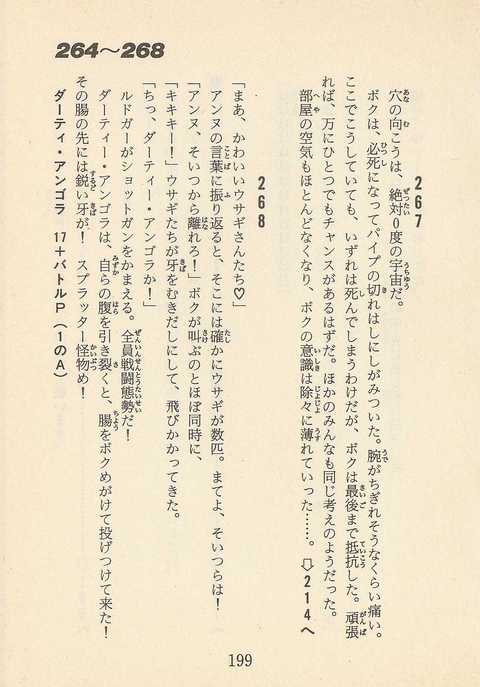 264〜268
267
穴の向こうは、絶対0度の宇宙だ。
ボクは、必死になってパイプの切れはしにしがみついた。腕がちぎれそうなくらい痛い。
ここでこうしていても、いずれは死んでしまうわけだが、ボクは最後まで抵抗した。頑張
れば、万にひとつでもチャンスがあるはずだ。ほかのみんなも同じ考えのようだった。
部屋の空気もほとんどなくなり、ボクの意識は除々に薄れていった……。⇩214へ
268
「まあ、かわいいウサギさんたち♡」
アンヌの言葉に振り返ると、そこには確かにウサギが数匹。まてよ、そいつらは！
「アンヌ、そいつから離れろ！」ボクが叫ぶのとほぼ同時に、
「キキキー！」ウサギたちが牙をむきだしにして、飛びかかってきた。
「ちっ、ダーティー・アンゴラか！」
ルドガーがショットガンをかまえる。全員戦闘態勢だ！
ダーティー・アンゴラは、自らの腹を引き裂くと、腸をボクめがけて投げつけて来た！
その腸の先には鋭い牙が！　スプラッター怪物め！
ダーティ・アンゴラ　17＋バトルP（1のA）
199